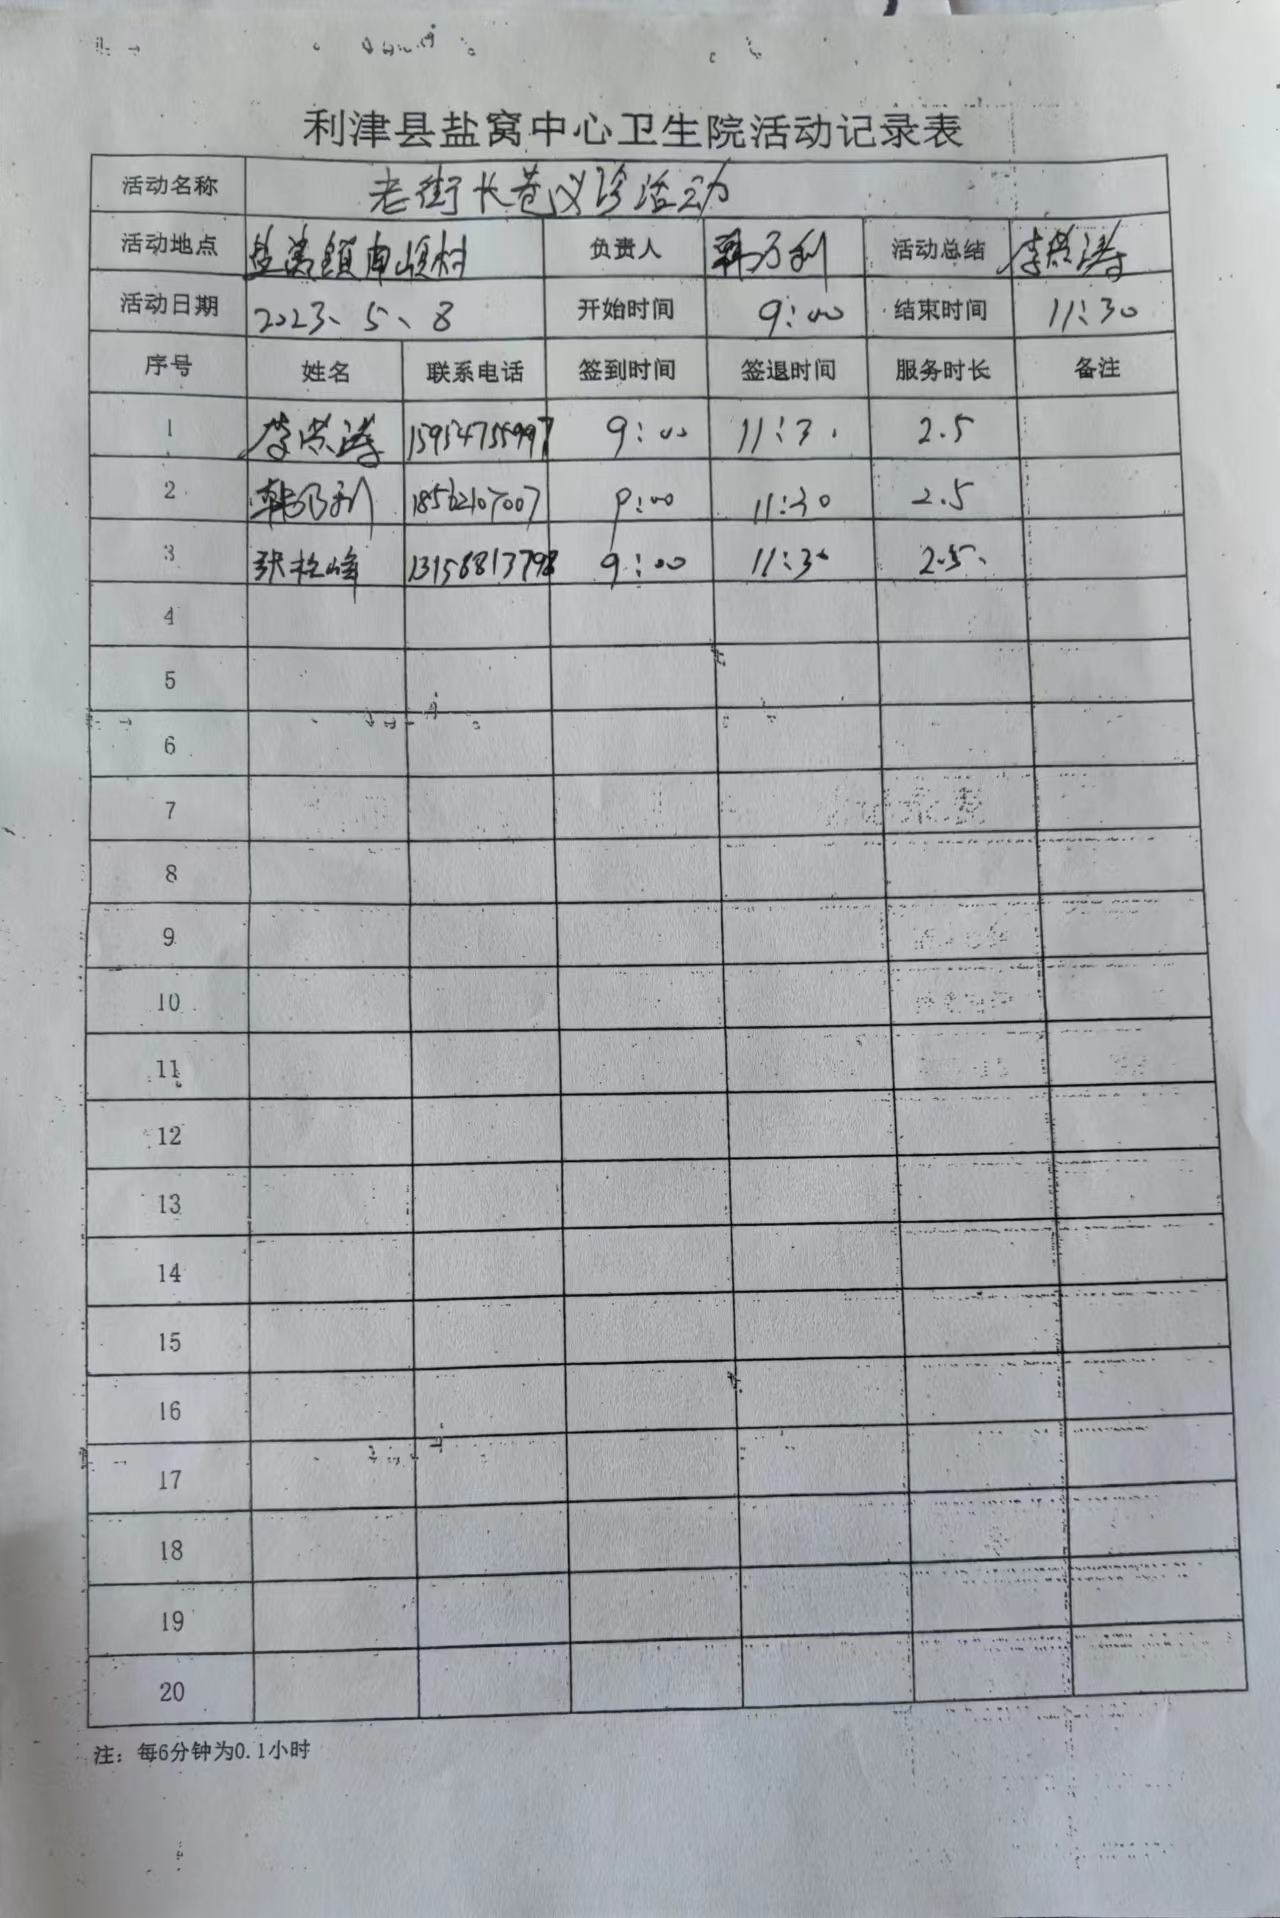 利津县盐窝中心卫生院活动记录表
活动名称 老街长巷义诊活动
活动地点 盐窝镇南岭村 负责人 韩乃利 活动总结 李洪涛
活动日期 2023、5、8 开始时间 9:00 结束时间 11:30
序号 姓名 联系电话 签到时间 签退时间 服务时长 备注
1 李洪涛 9:00 11:30 2.5
2 韩乃利 18562107007 9:00 11:30 2.5
3 峰 13156813798 9:00 11:30 2.5
4
5
6
7
8
9
10
11
12
13
14
15
16
17
18
19
20
注：每6分钟为0.1小时